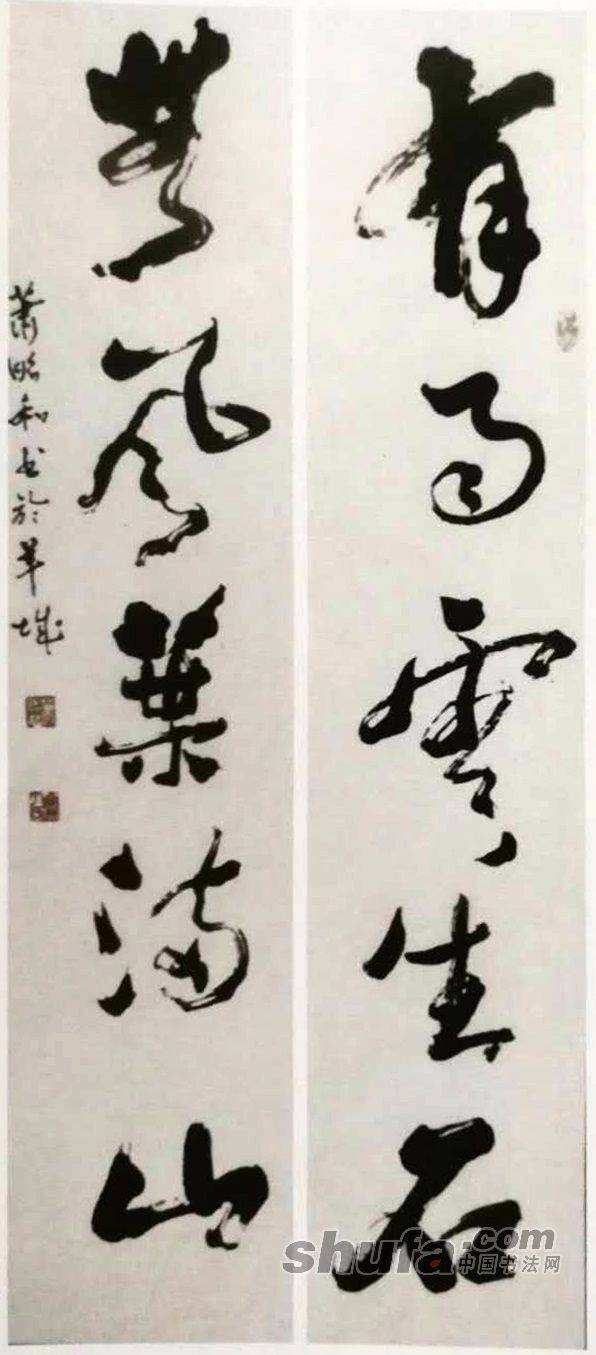 有雨雲生石
無風葉滿山
蕭昭和書於羊城
shufa.com
中国书法网